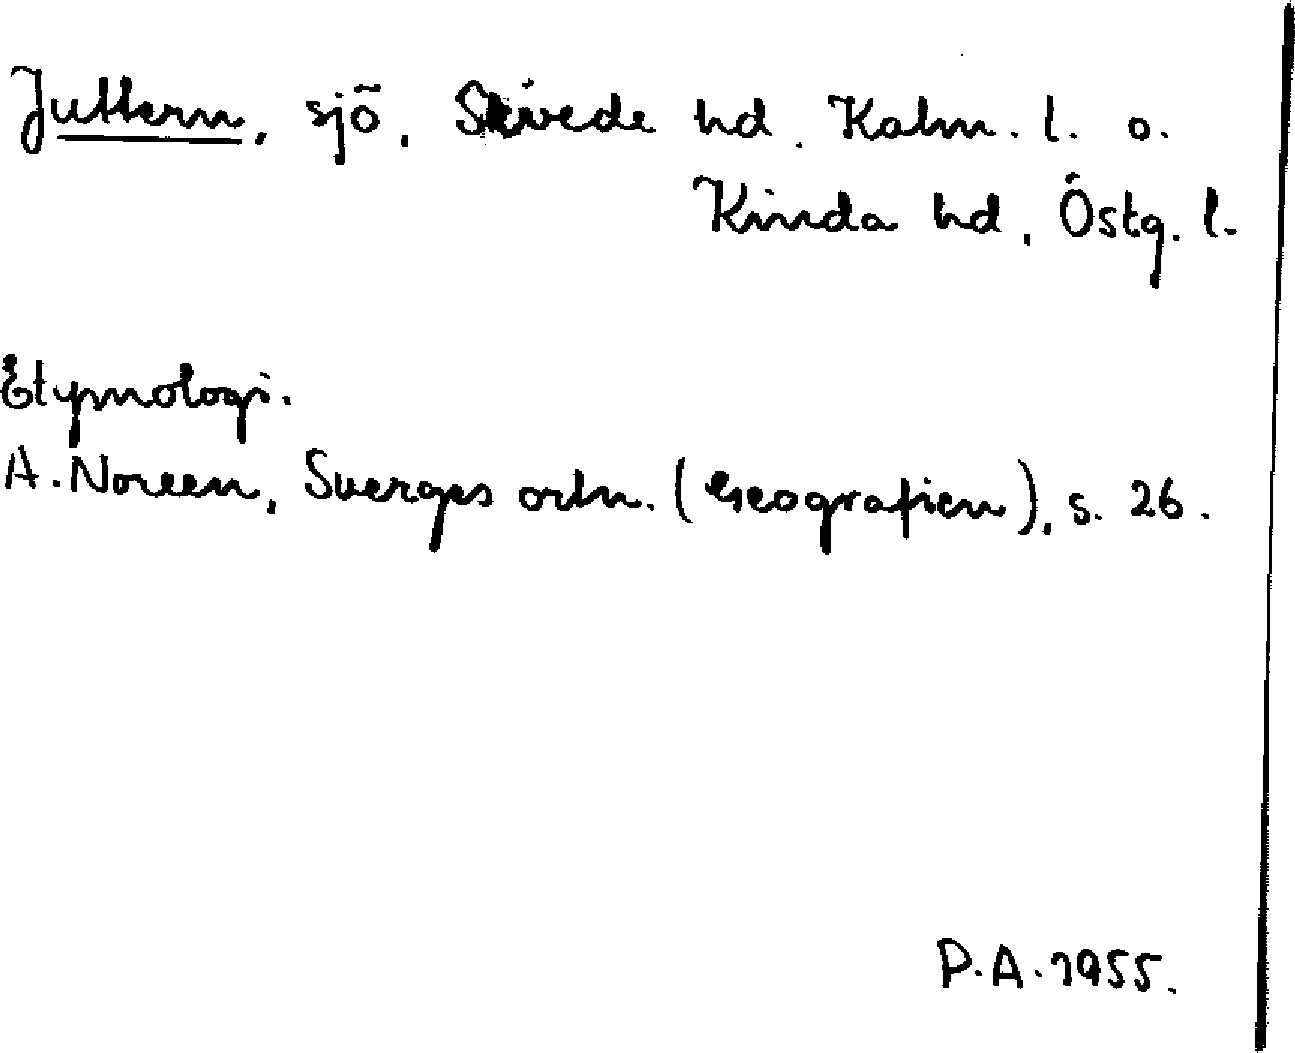 Juttern, sjö, Sevede hd. Kalm. l. o.
Kinda hd, Östg. l.
Etymologi.
A. Noreen, Sverges ortn. (Geografien), s. 26.
P.A. 1955.